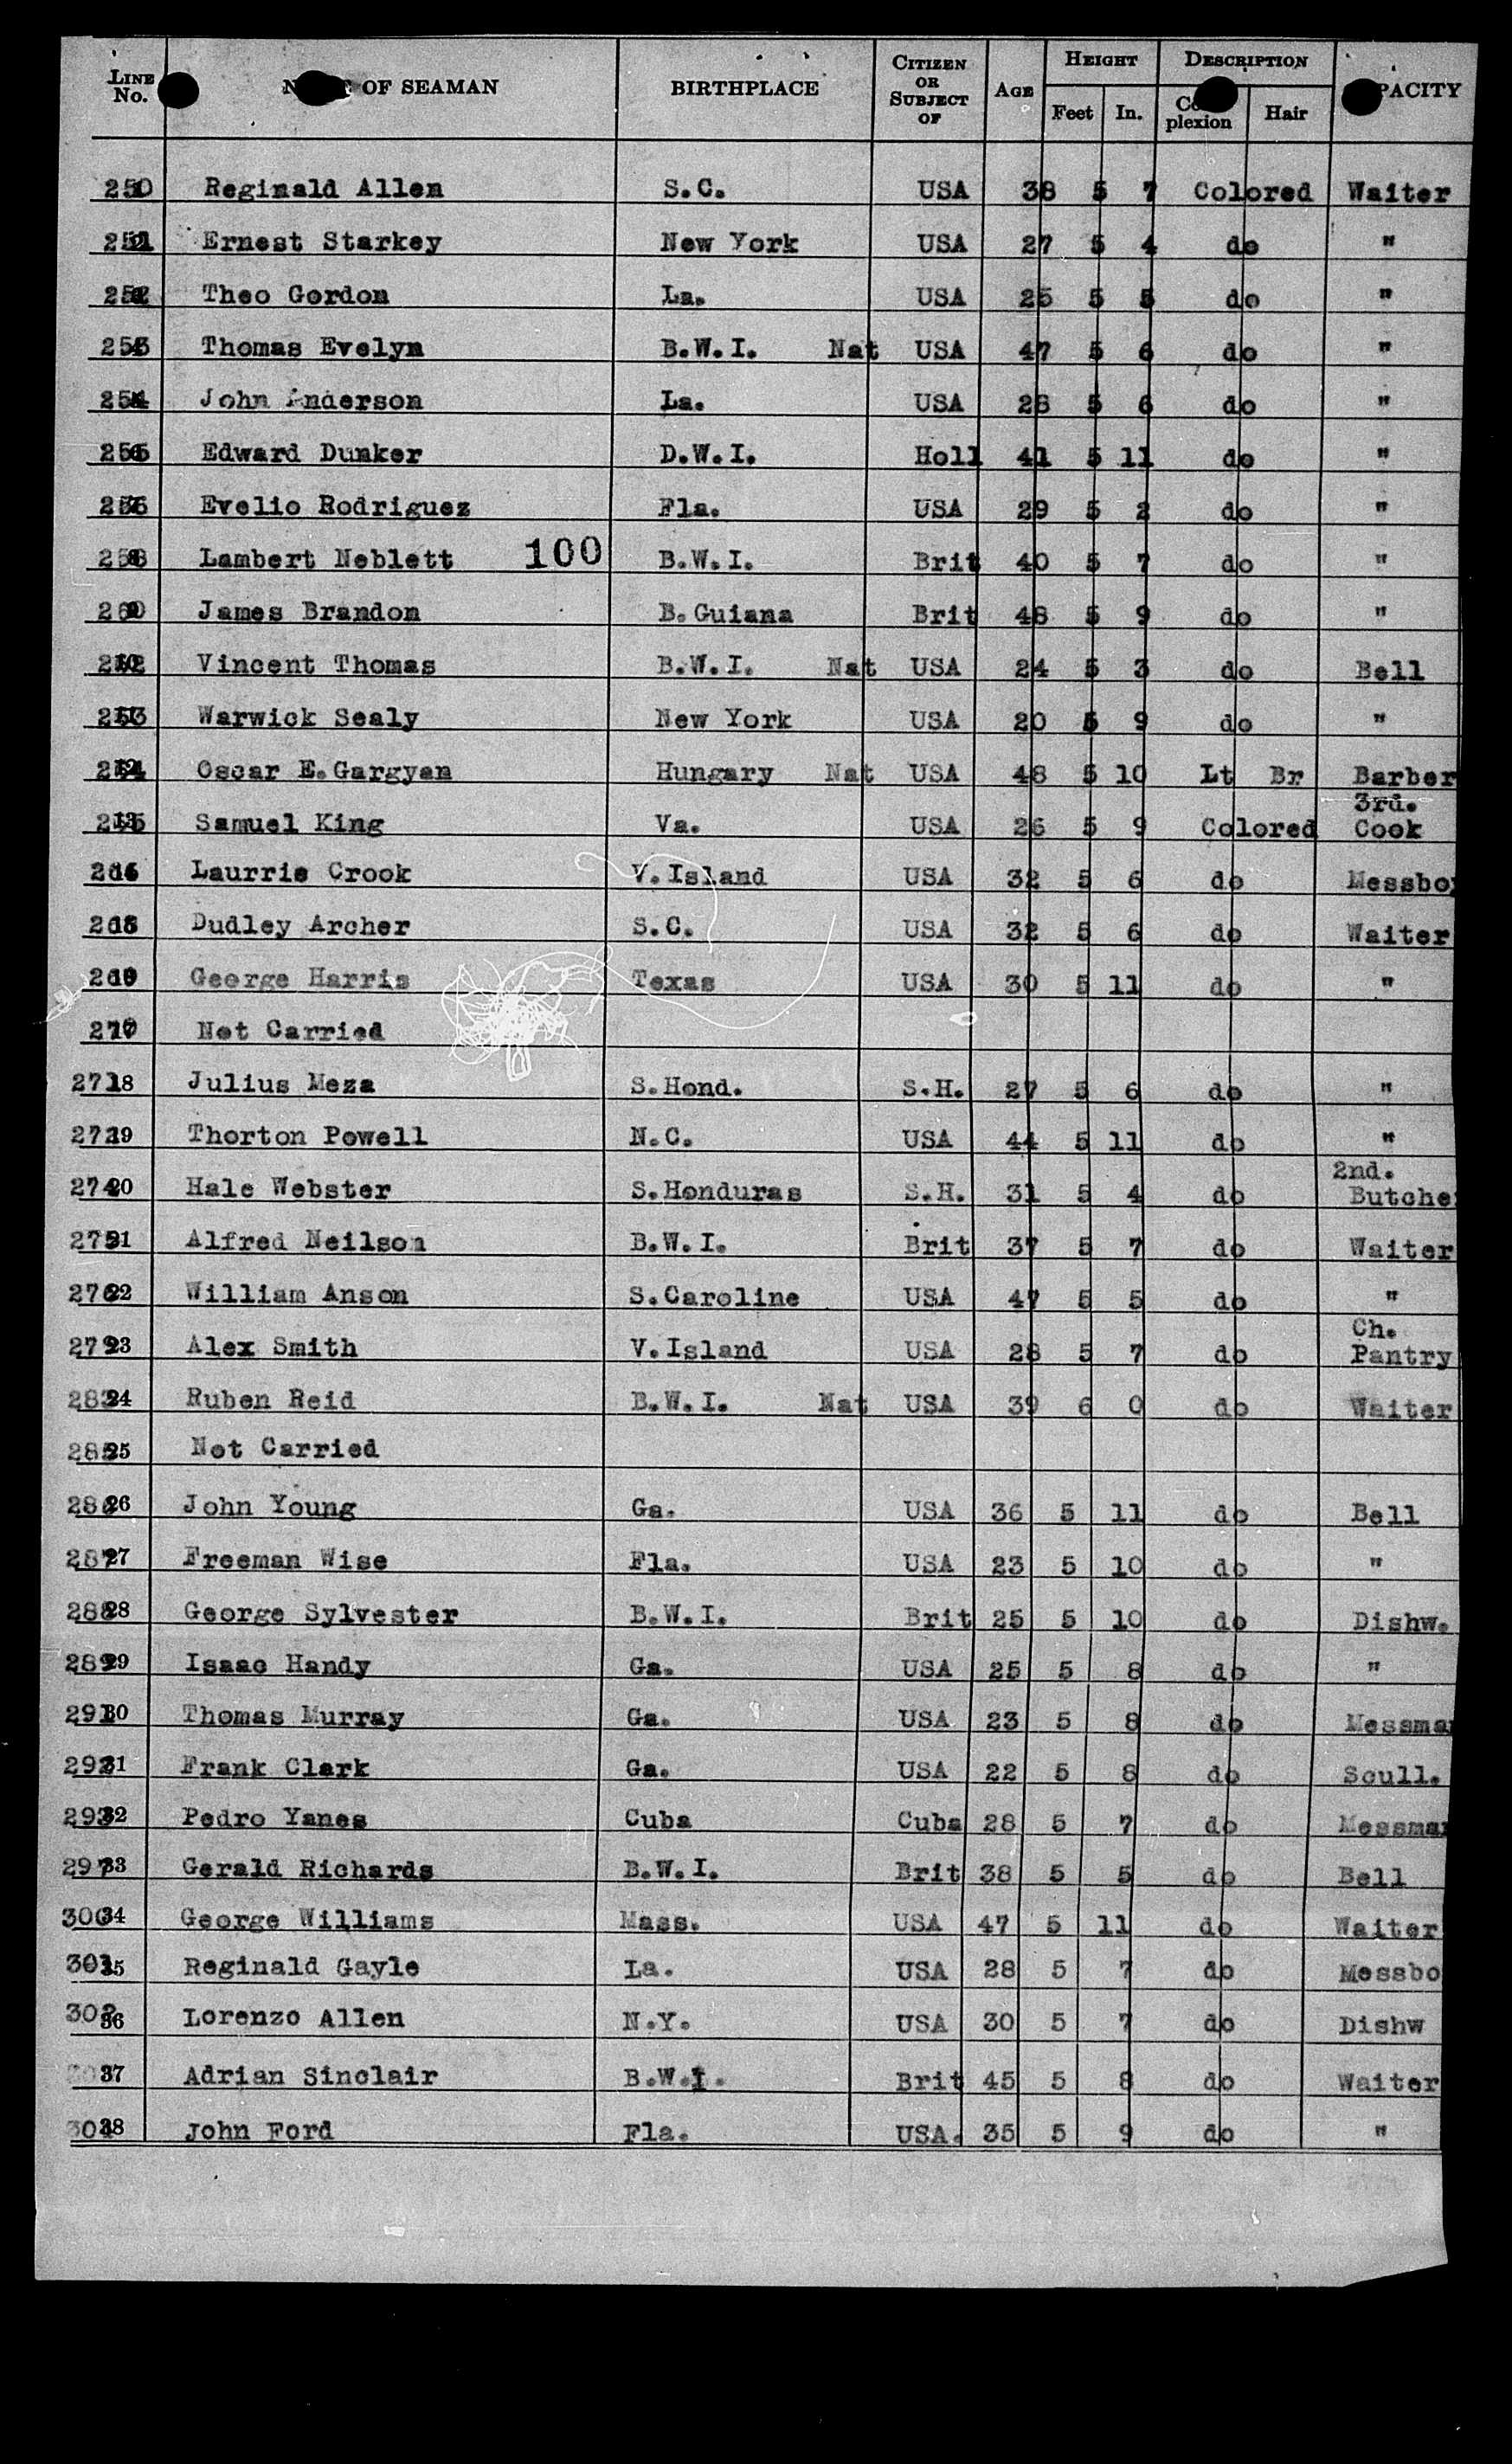 LINE No. NAME OF SEAMAN BIRTHPLACE CITIZEN OR SUBJECT OF AGE HEIGHT Feet In. DESCRIPTION Complexion Hair CAPACITY
250 Reginald Allen S.C. USA 38 5 7 Colored Waiter
251 Ernest Starkey New York USA 27 5 4 do "
252 Theo Gordon La. USA 25 5 5 do "
253 Thomas Evelyn B.W.I. Nat USA 47 5 6 do "
254 John Anderson La. USA 28 5 6 do "
255 Edward Dunker D.W.I. Holl 41 5 11 do "
256 Evelio Rodriguez Fla. USA 29 5 2 do "
258 Lambert Neblett 100 B.W.I. Brit 40 5 7 do "
260 James Brandon B.Guiana Brit 48 5 9 do "
Vincent Thomas B.W.I. Nat USA 24 5 3 do Bell
Warwick Sealy New York USA 20 5 9 do "
Oscar E.Gargyan Hungary Nat USA 48 5 10 Lt Br Barber
Samuel King Va. USA 26 5 9 Colored 3rd. Cook
Laurrie Crook V.Island USA 32 5 6 do Messboy
Dudley Archer S.C. USA 32 5 6 do Waiter
George Harris Texas USA 30 5 11 do "
Not Carried
271 18 Julius Meza S.Hond. S.H. 27 5 6 do "
19 Thorton Powell N.C. USA 44 5 11 do "
274 20 Hale Webster S.Honduras S.H. 31 5 4 do 2nd. Butche
275 21 Alfred Neilson B.W.I. Brit 37 5 7 do Waiter
276 22 William Anson S.Caroline USA 47 5 5 do "
279 23 Alex Smith V.Island USA 28 5 7 do Ch. Pantry
24 Ruben Reid B.W.I. Nat USA 39 6 0 do Waiter
285 25 Not Carried
286 26 John Young Ga. USA 36 5 11 do Bell
287 27 Freeman Wise Fla. USA 23 5 10 do "
288 28 George Sylvester B.W.I. Brit 25 5 10 do Dishw.
289 29 Isaac Handy Ga. USA 25 5 8 do "
291 30 Thomas Murray Ga. USA 23 5 8 do Messma
292 31 Frank Clark Ga. USA 22 5 8 do Scull.
293 32 Pedro Yanes Cuba Cuba 28 5 7 do Messman
297 33 Gerald Richards B.W.I. Brit 38 5 5 do Bell
300 34 George Williams Mass. USA 47 5 11 do Waiter
301 35 Reginald Gayle La. USA 28 5 7 do Messbo
302 36 Lorenzo Allen N.Y. USA 30 5 7 do Dishw
37 Adrian Sinclair B.W.I. Brit 45 5 8 do Waiter
304 38 John Ford Fla. USA. 35 5 9 do "